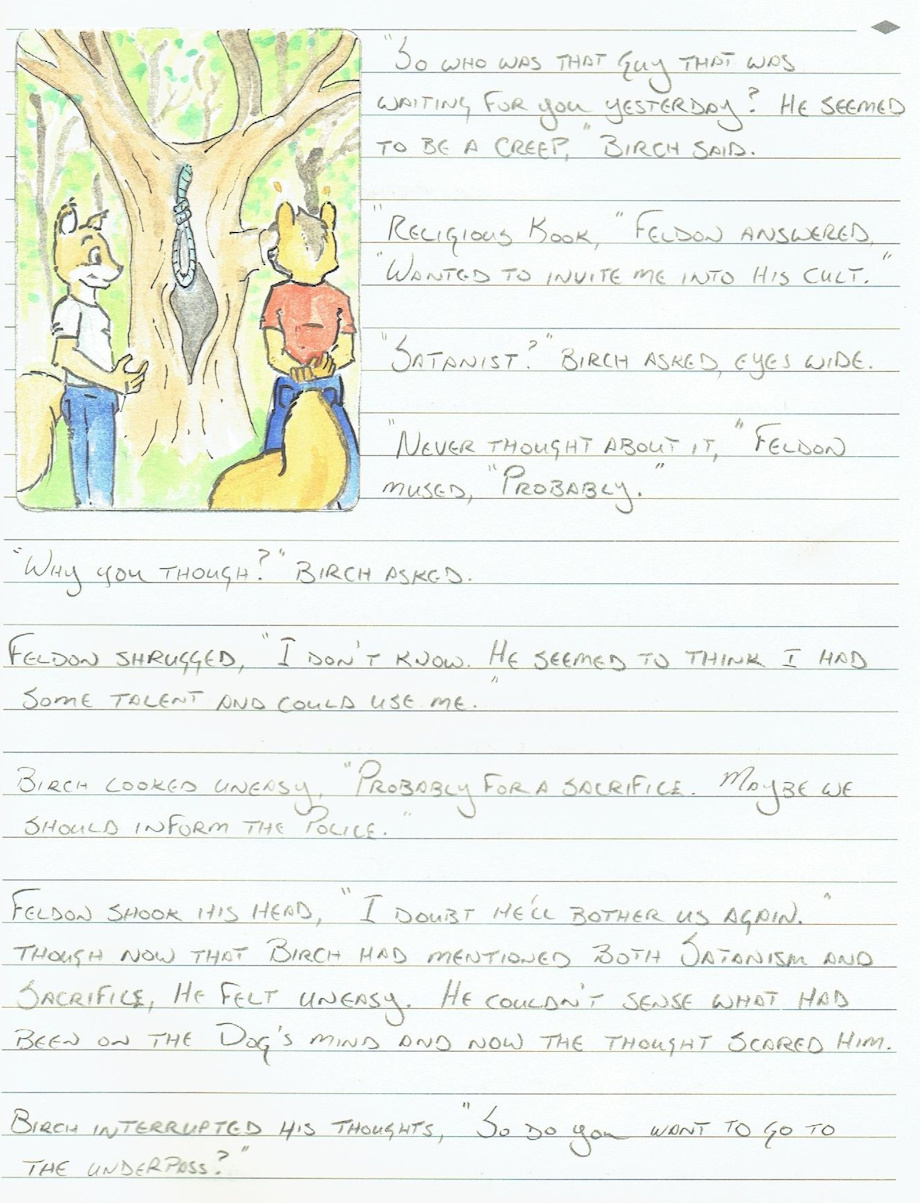 "So who was that guy that was
waiting for you yesterday? He seemed
to be a creep," Birch said.
"Religious Kook," Feldon answered,
"Wanted to invite me into his cult."
"Satanist?" Birch asked, eyes wide.
"Never thought about it," Feldon
mused, "Probably."
"Why you though?" Birch asked.
Feldon shrugged, "I don't know. He seemed to think I had
some talent and could use me."
Birch looked uneasy, "Probably for a sacrifice. Maybe we
should inform the Police."
Feldon shook his head, "I doubt he'll bother us again."
Though now that Birch had mentioned both Satanism and
Sacrifice, He felt uneasy. He couldn't sense what had
been on the Dog's mind and now the thought scared him.
Birch interrupted his thoughts, "So do you want to go to
the underpass?"